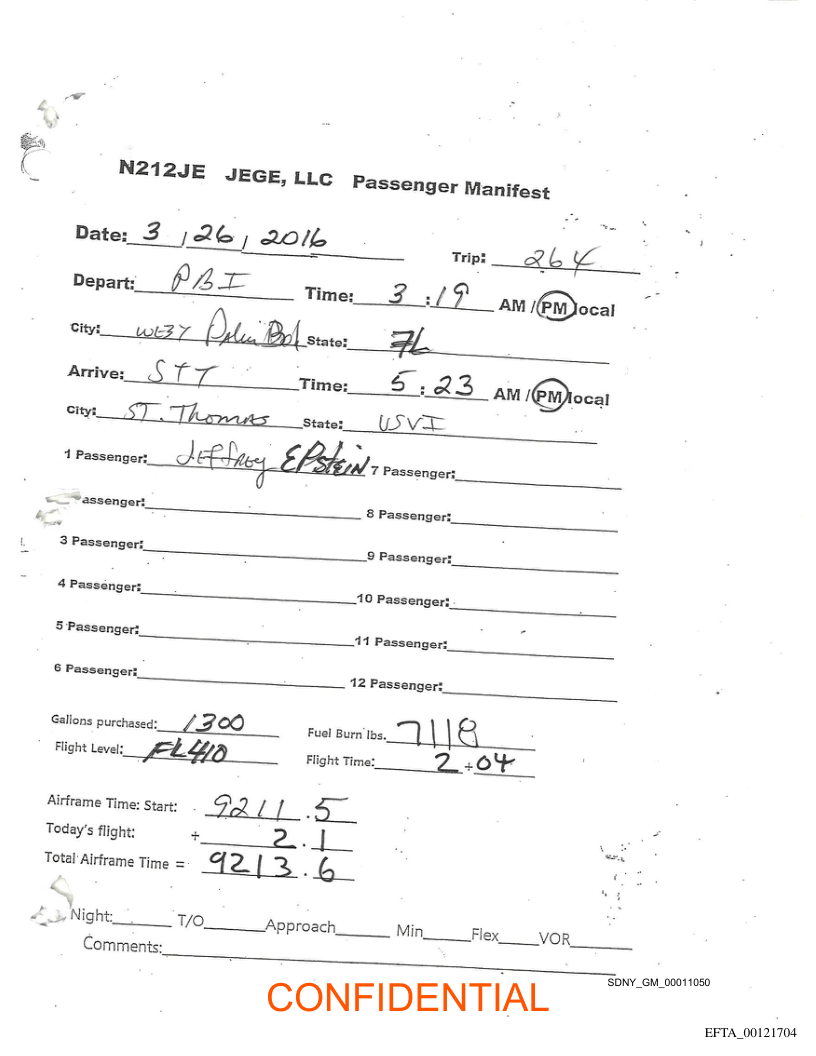 N212JE JEGE, LLC Passenger Manifest
Date: 3 / 26 / 2016
Trip: 264
Depart: PBI Time: 3:19 AM / PM local
City: West Palm Bch State:
Arrive: STT Time: 5:23 AM / PM local
City: ST. Thomas State: USVI
1 Passenger: Jeffrey EPstein 7 Passenger:
assenger: 8 Passenger:
3 Passenger: 9 Passenger:
4 Passenger: 10 Passenger:
5 Passenger: 11 Passenger:
6 Passenger: 12 Passenger:
Gallons purchased: 1300 Fuel Burn lbs. 7118
Flight Level: FL410 Flight Time: 2+04
Airframe Time: Start: 9211.5
Today's flight: + 2.1
Total Airframe Time = 9213.6
Night: T/O Approach Min Flex VOR
Comments:
SDNY_GM_00011050
CONFIDENTIAL
EFTA_00121704